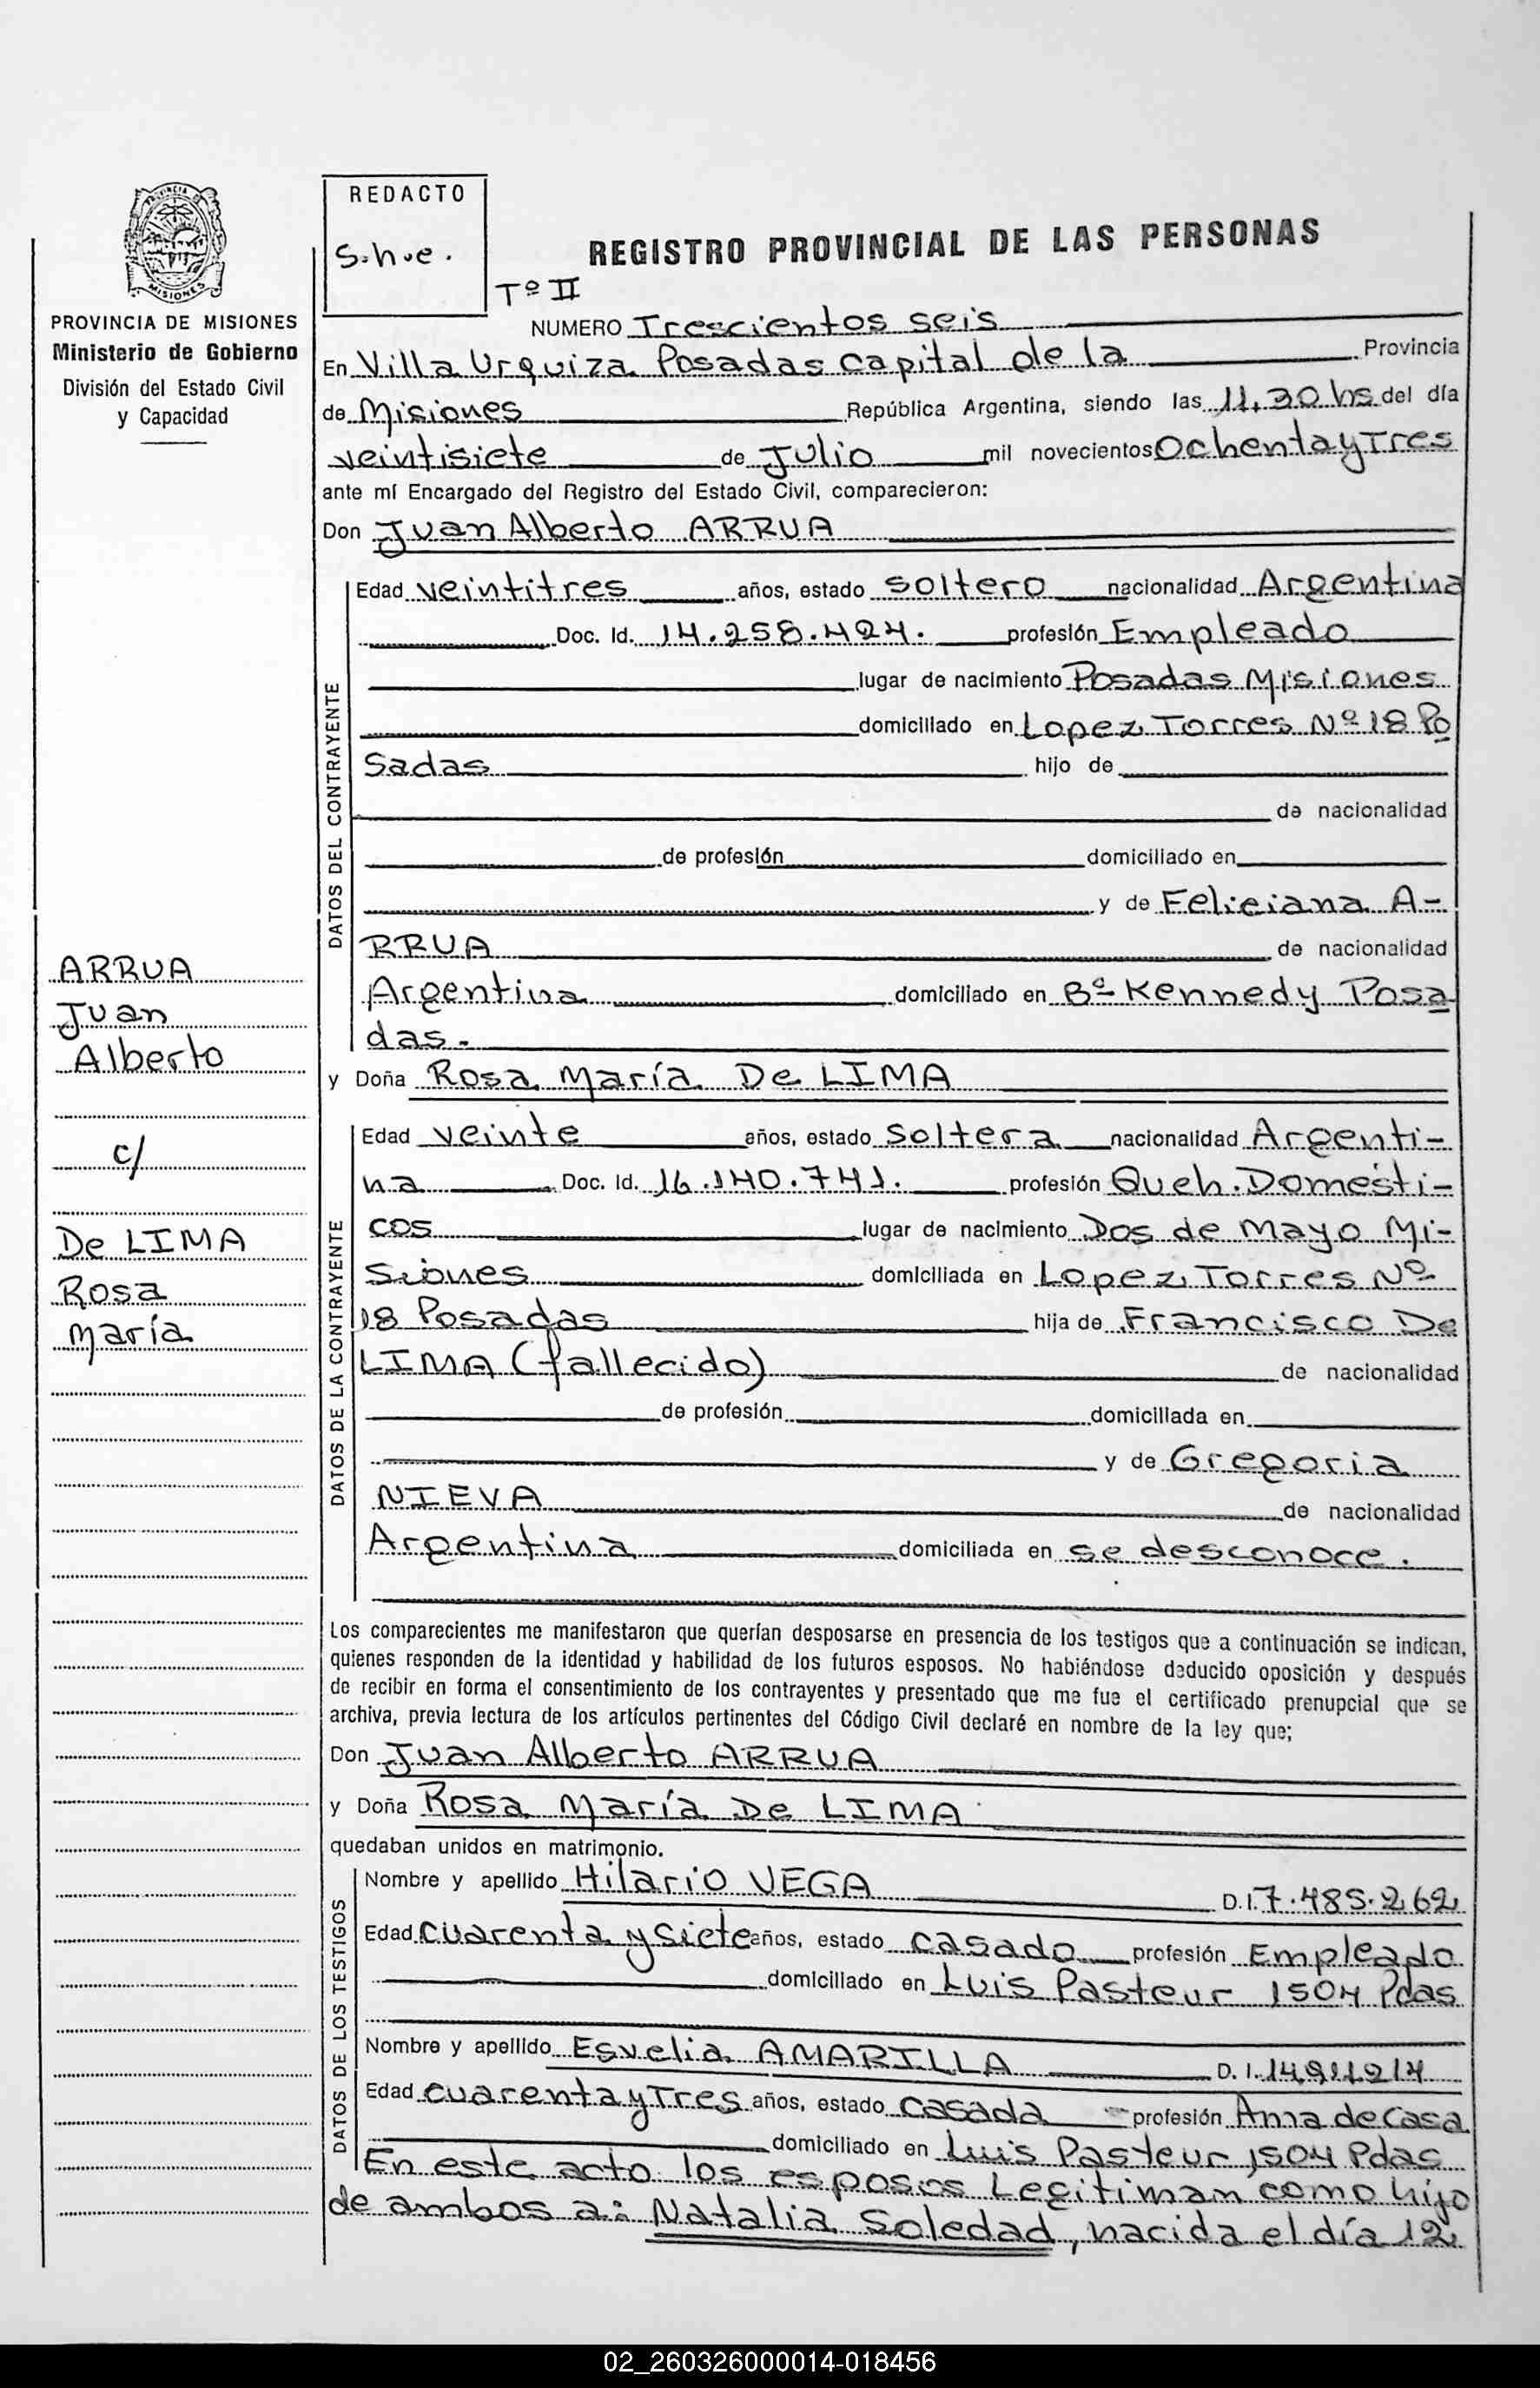 PROVINCIA DE MISIONES
Ministerio de Gobierno
División del Estado Civil
y Capacidad
ARRUA
Juan
Alberto
c/
De LIMA
Rosa
María
REDACTO
S.h.e.
REGISTRO PROVINCIAL DE LAS PERSONAS
Tº II
NUMERO Trescientos seis
En Villa Urquiza Posadas Capital de la Provincia
de Misiones República Argentina, siendo las 11,30 hs del día
veintisiete de Julio mil novecientos Ochenta y Tres
ante mí Encargado del Registro del Estado Civil, comparecieron:
Don Juan Alberto ARRUA
DATOS DEL CONTRAYENTE
Edad veintitres años, estado soltero nacionalidad Argentina
Doc. Id. 14.258.424. profesión Empleado
lugar de nacimiento Posadas Misiones
domiciliado en Lopez Torres Nº 18 Po
sadas hijo de
de nacionalidad
de profesión domiciliado en
y de Feliciana A-
RRUA de nacionalidad
Argentina domiciliado en Bº Kennedy Posa
das.
y Doña Rosa María De LIMA
DATOS DE LA CONTRAYENTE
Edad veinte años, estado soltera nacionalidad Argenti-
na Doc. Id. 16.140.741. profesión Queh. Domésti-
cos lugar de nacimiento Dos de Mayo Mi-
siones domiciliada en Lopez Torres Nº
18 Posadas hija de Francisco De
LIMA (fallecido) de nacionalidad
de profesión domiciliada en
y de Gregoria
NIEVA de nacionalidad
Argentina domiciliada en se desconoce.
Los comparecientes me manifestaron que querían desposarse en presencia de los testigos que a continuación se indican,
quienes responden de la identidad y habilidad de los futuros esposos. No habiéndose deducido oposición y después
de recibir en forma el consentimiento de los contrayentes y presentado que me fue el certificado prenupcial que se
archiva, previa lectura de los artículos pertinentes del Código Civil declaré en nombre de la ley que;
Don Juan Alberto ARRUA
y Doña Rosa María De LIMA
quedaban unidos en matrimonio.
DATOS DE LOS TESTIGOS
Nombre y apellido Hilario VEGA D.I. 7.485.262
Edad cuarenta y siete años, estado casado profesión Empleado
domiciliado en Luis Pasteur 1504 Pdas
Nombre y apellido Esvelia AMARILLA D. I. 14.911.214
Edad cuarenta y Tres años, estado casada profesión Ama de Casa
domiciliado en Luis Pasteur 1504 Pdas
En este acto los esposos Legitiman como hijo
de ambos a: Natalia Soledad, nacida el día 12
02_260326000014-018456